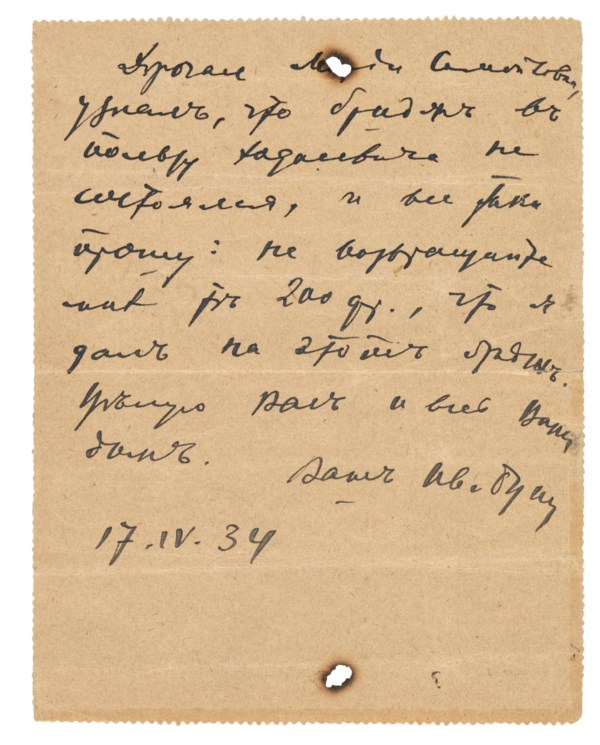 Дорогая М Самойловна,
узналъ, что бриджъ въ
пользу Ходасевича не
состоялся, и все таки
прошу: не возвращайте
мнѣ тѣ 200 фр., что я
далъ на этотъ бриджъ.
Цѣлую Васъ и весь Вашъ
домъ.
Вашъ Ив. Бунин
17.IV.34